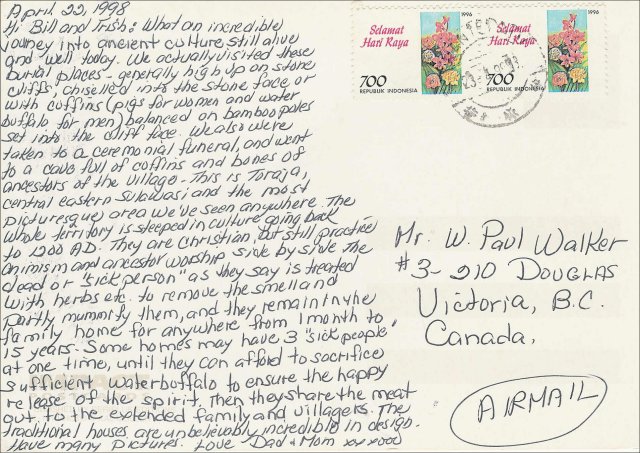 April 22, 1998
Hi Bill and Trish: What an incredible
journey into ancient culture still alive
and well today. We actually visited these
burial places - generally high up on stone
cliffs, chiselled into the stone face, or
with coffins (pigs for women and water
buffalo for men) balanced on bamboo poles
set into the cliff face. We also were
taken to a ceremonial funeral, and went
to a cave full of coffins and bones of
ancestors of the village - This is Toraja,
central eastern Sulawasi and the most
picturesque area we've seen anywhere. The
whole territory is steeped in culture going back
to 1200 AD. They are Christian, but still practice
animism and ancestor worship side by side. The
dead or "sick person" as they say is treated
with herbs etc. to remove the smell and
partly mummify them, and they remain in the
family home for anywhere from 1 month to
15 years. Some homes may have 3 "sick people"
at one time, until they can afford to sacrifice
sufficient waterbuffalo to ensure the happy
release of the spirit. Then they share the meat
out to the extended family and villagers. The
traditional houses are unbelievably incredible in design.
Have many pictures. Love Dad & Mom xx xooo
Selamat
Hari Raya
1996
700
REPUBLIK INDONESIA
Selamat
Hari Raya
1996
700
REPUBLIK INDONESIA
Mr. W. Paul Walker
#3-210 DOUGLAS
Victoria, B.C.
Canada.
AIRMAIL